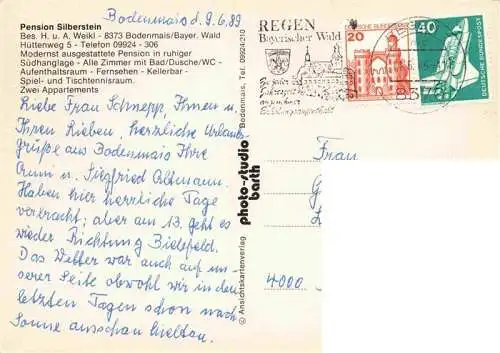 Pension Silberstein
Bes. H. u. A. Weikl - 8373 Bodenmais/Bayer. Wald
Hüttenweg 5 - Telefon 09924 - 306
Modernst ausgestattete Pension in ruhiger
Südhanglage - Alle Zimmer mit Bad/Dusche/WC -
Aufenthaltsraum - Fernsehen - Kellerbar -
Spiel- und Tischtennisraum.
Zwei Appartements
Bodenmais d. 9.6.89
Liebe Frau Schnepp, Ihnen u.
Ihren Lieben, herzliche Urlaubs-
grüße aus Bodenmais Ihre
u. Siegfried Altmann.
Haben hier herrliche Tage
verbracht; aber am 13. geht es
wieder Richtung Bielefeld.
Das Wetter war auch auf un-
serer Seite obwohl wir in den
letzten Tagen schon nach
Sonne ausschau hielten.
© Ansichtskartenverlag
photo-studio
barth
Bodenmais, Tel. 09924/210
REGEN
Bayerischer Wald
20
40
DEUTSCHE BUNDESPOST
837
Frau
G
L
4000